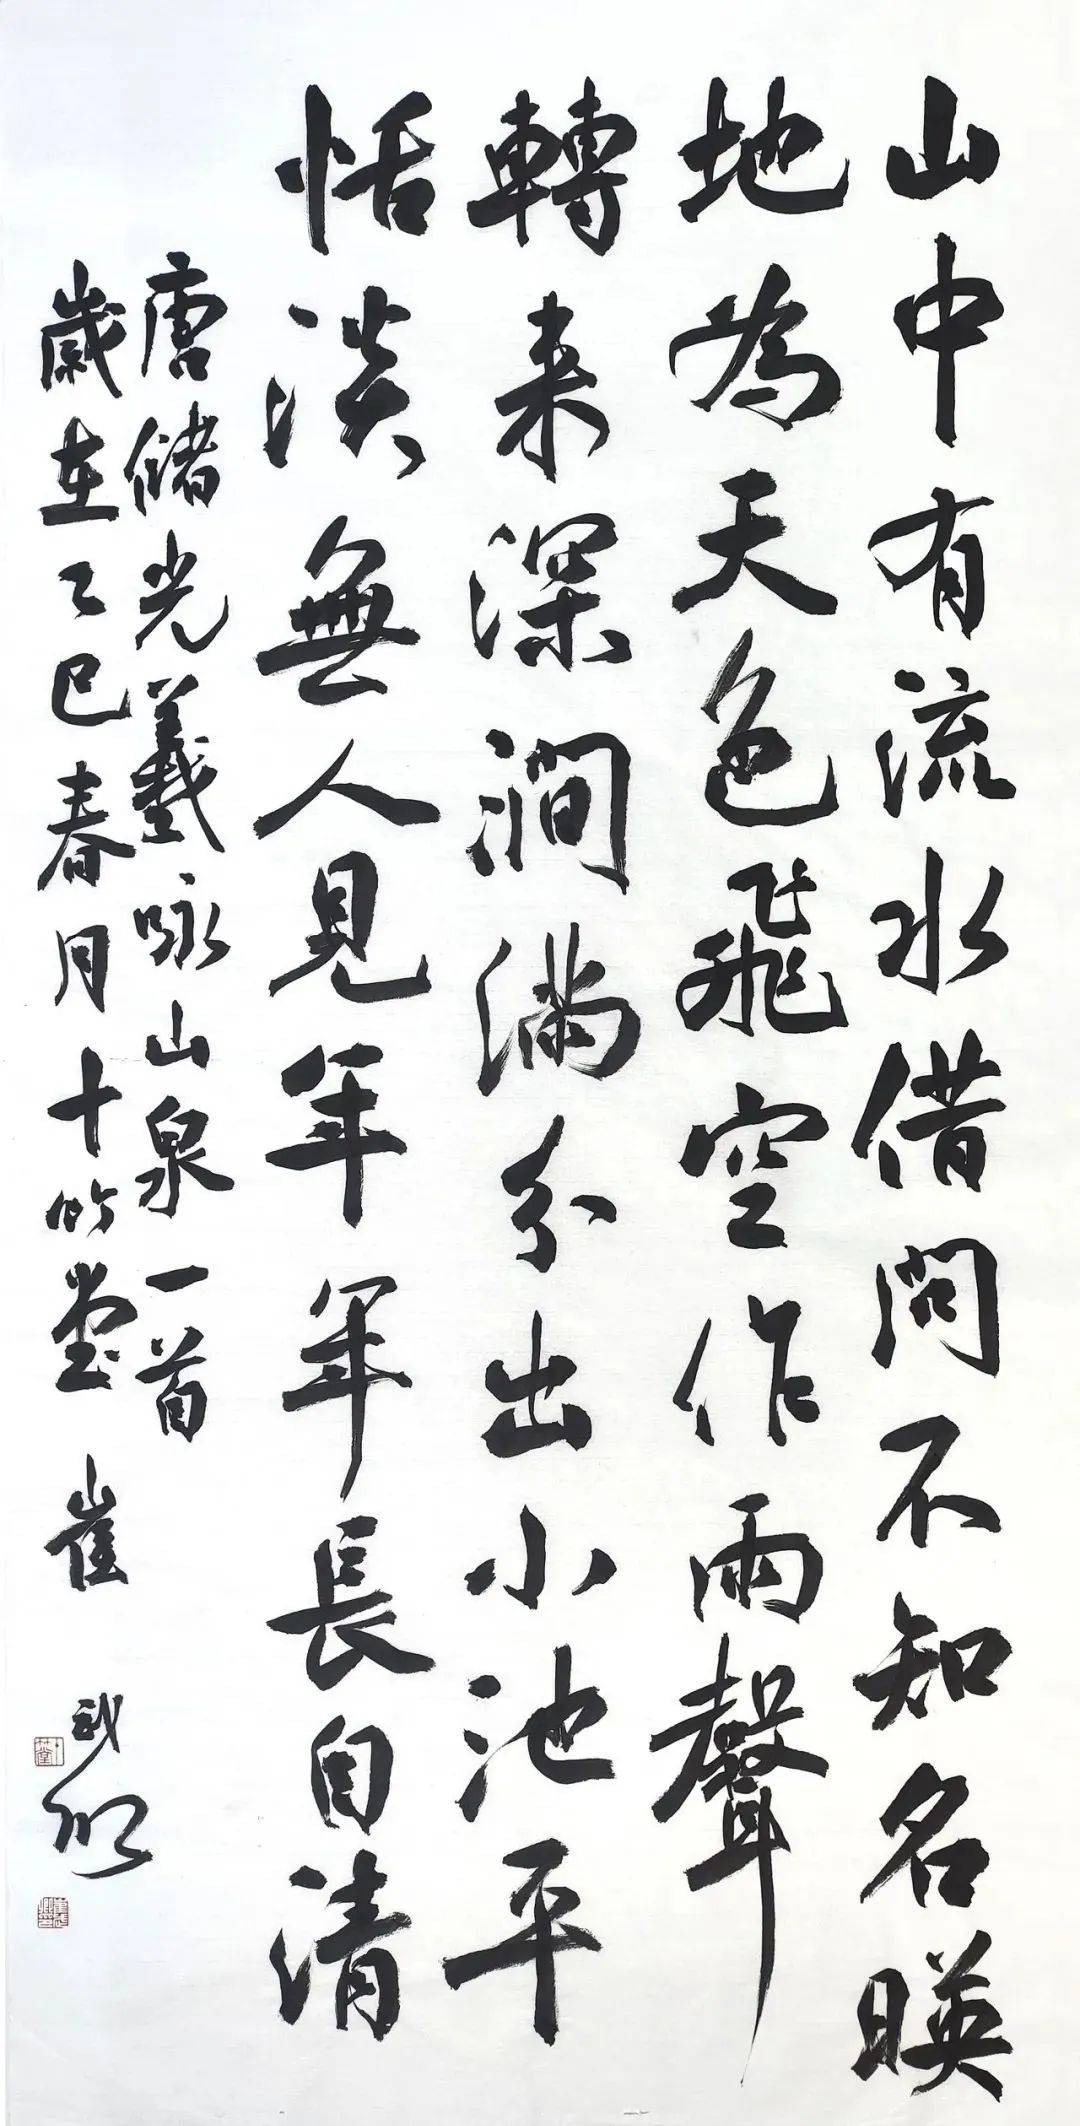 山中有流水借問不知名暎
地為天色飛空作雨聲
轉来深澗滿分出小池平
恬淡無人見年年長自清
唐儲光羲咏山泉一首
歲在乙巳春月十竹堂 崔